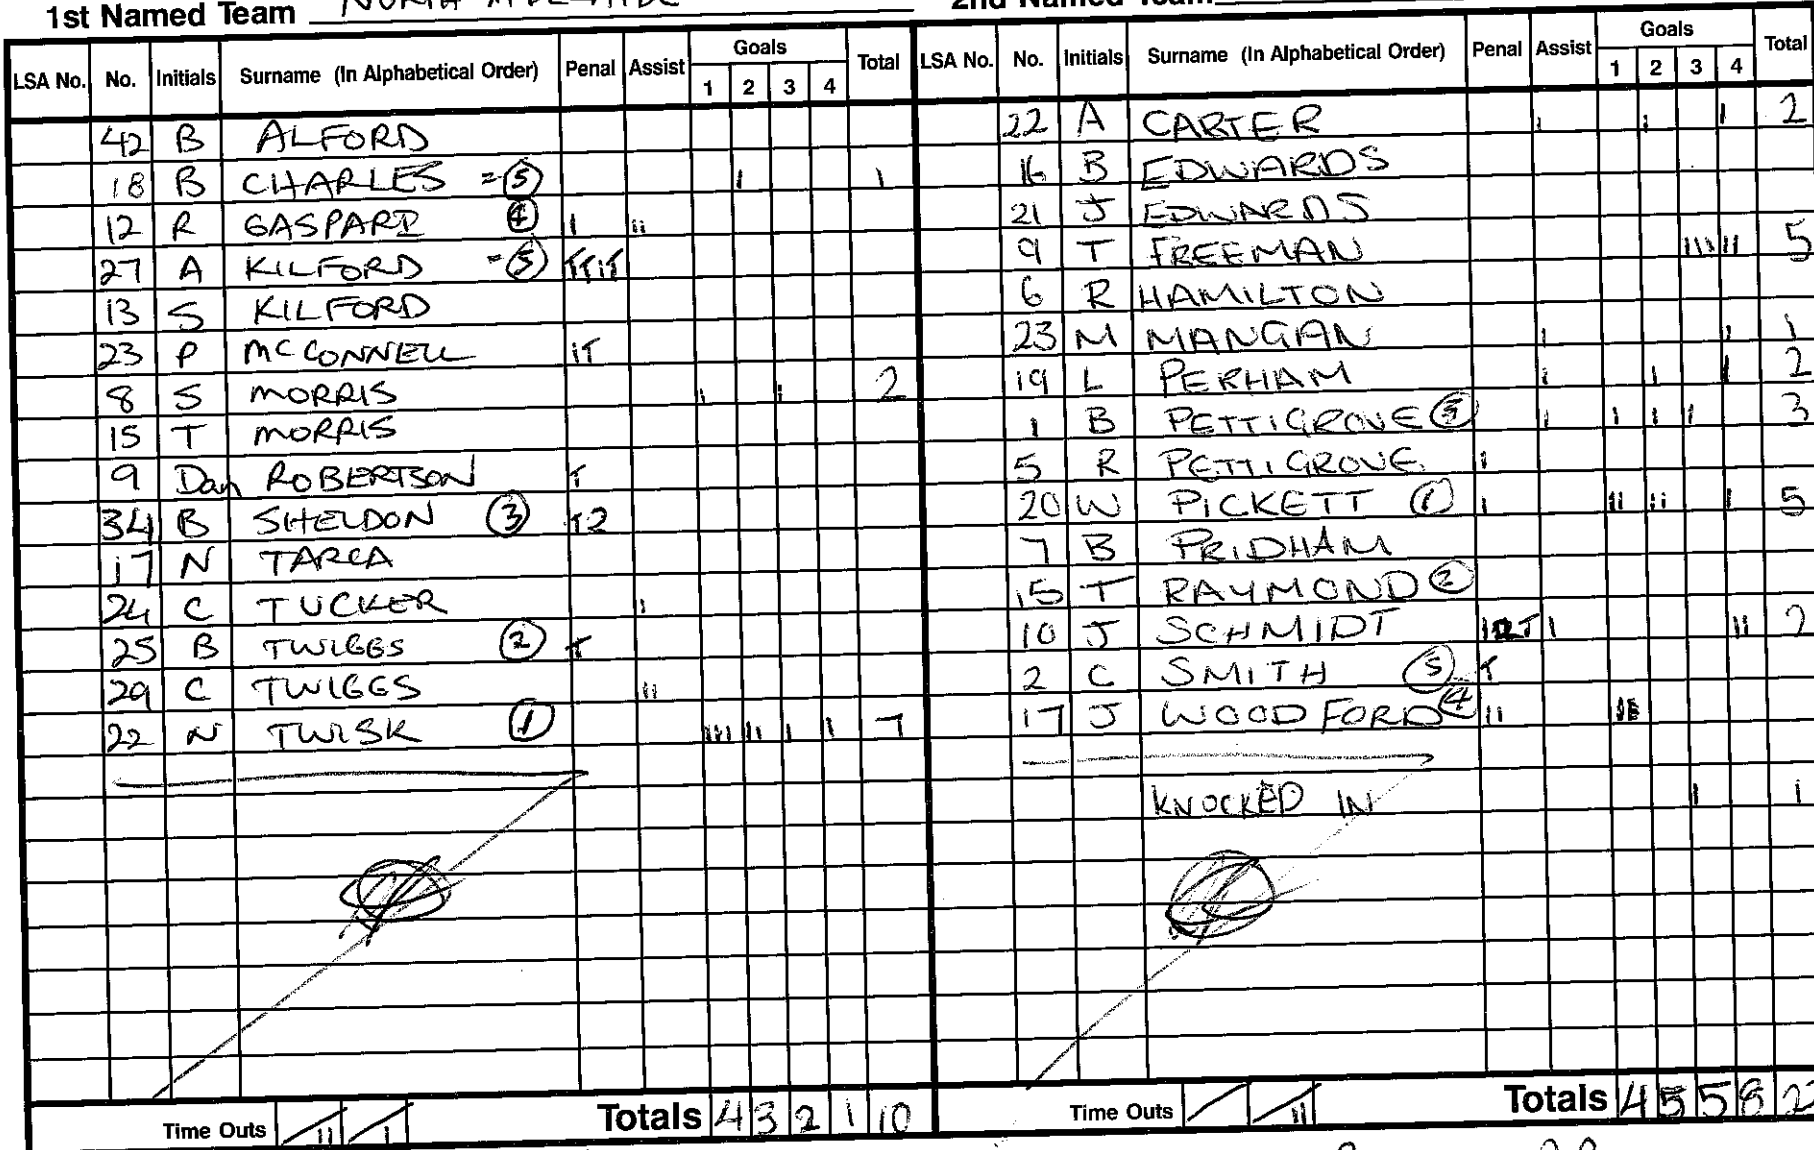 1st Named Team NORTH ADELAIDE 2nd Named Team
LSA No. No. Initials Surname (In Alphabetical Order) Penal Assist Goals 1 2 3 4 Total
42 B ALFORD
18 B CHARLES =5 1 1
12 R GASPARI 4 1 11
27 A KILFORD =5 TTIT
13 S KILFORD
23 P MCCONNELL IT
8 S MORRIS 1 1 2
15 T MORRIS
9 Dan ROBERTSON T
34 B SHELDON 3 T2
17 N TARCA
24 C TUCKER 1
25 B TWIGGS 2 T
29 C TWIGGS 11
22 N TWISK 1 111 11 1 1 7
Time Outs 11 1 Totals 4 3 2 1 10
LSA No. No. Initials Surname (In Alphabetical Order) Penal Assist Goals 1 2 3 4 Total
22 A CARTER 1 1 1 2
16 B EDWARDS
21 J EDWARDS
9 T FREEMAN 111 11 5
6 R HAMILTON
23 M MANGAN 1 1 1
19 L PERHAM 1 1 1 2
1 B PETTIGROVE 1 1 1 1 3
5 R PETTIGROVE 1
20 W PICKETT 1 1 11 11 1 5
7 B PRIDHAM
15 T RAYMOND 2
10 J SCHMIDT 1 11 2
2 C SMITH 5 T
17 J WOODFORD 4 11
KNOCKED IN 1 1
Time Outs 11 Totals 4 5 5 8